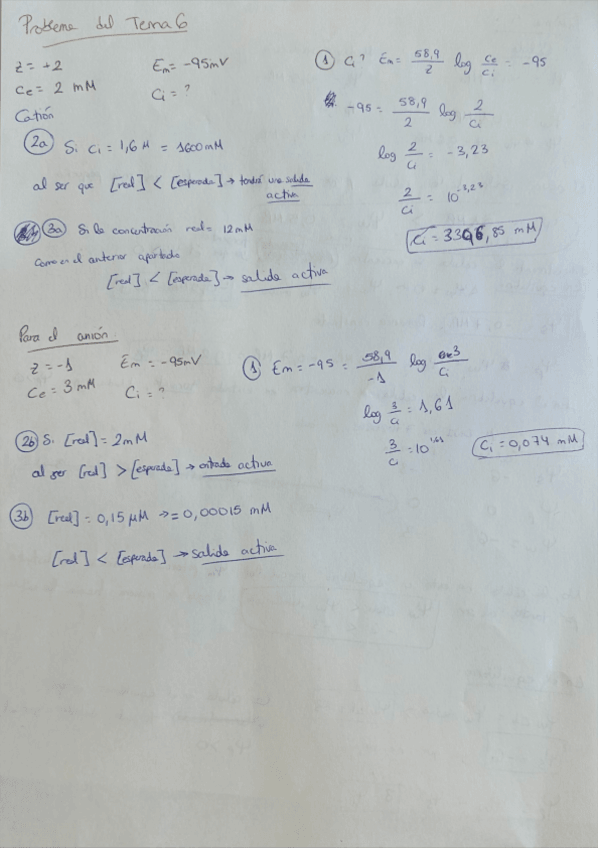 Problema del Tema 6
z = +2 Em = -95mV
Ce = 2 mM Ci = ?
Catión
① Ci? Em = 58,9/z log Ce/Ci = -95
-95 = 58,9/2 log 2/Ci
log 2/Ci = -3,23
2/Ci = 10^-3,23
Ci = 3396,85 mM
2a Si Ci = 1,6 M = 1600 mM
al ser que [real] < [esperada] → tendrá una salida
activa
3a Si la concentración real = 12 mM
Como en el anterior apartado
[real] < [esperada] → salida activa
Para el anión
z = -1 Em = -95mV
Ce = 3 mM Ci = ?
① Em = -95 = 58,9/-1 log 3/Ci
log 3/Ci = 1,61
3/Ci = 10^1,61
Ci = 0,074 mM
2b Si [real] = 2mM
al ser [real] > [esperada] → entrada activa
3b [real] = 0,15 μM => = 0,00015 mM
[real] < [esperada] → salida activa